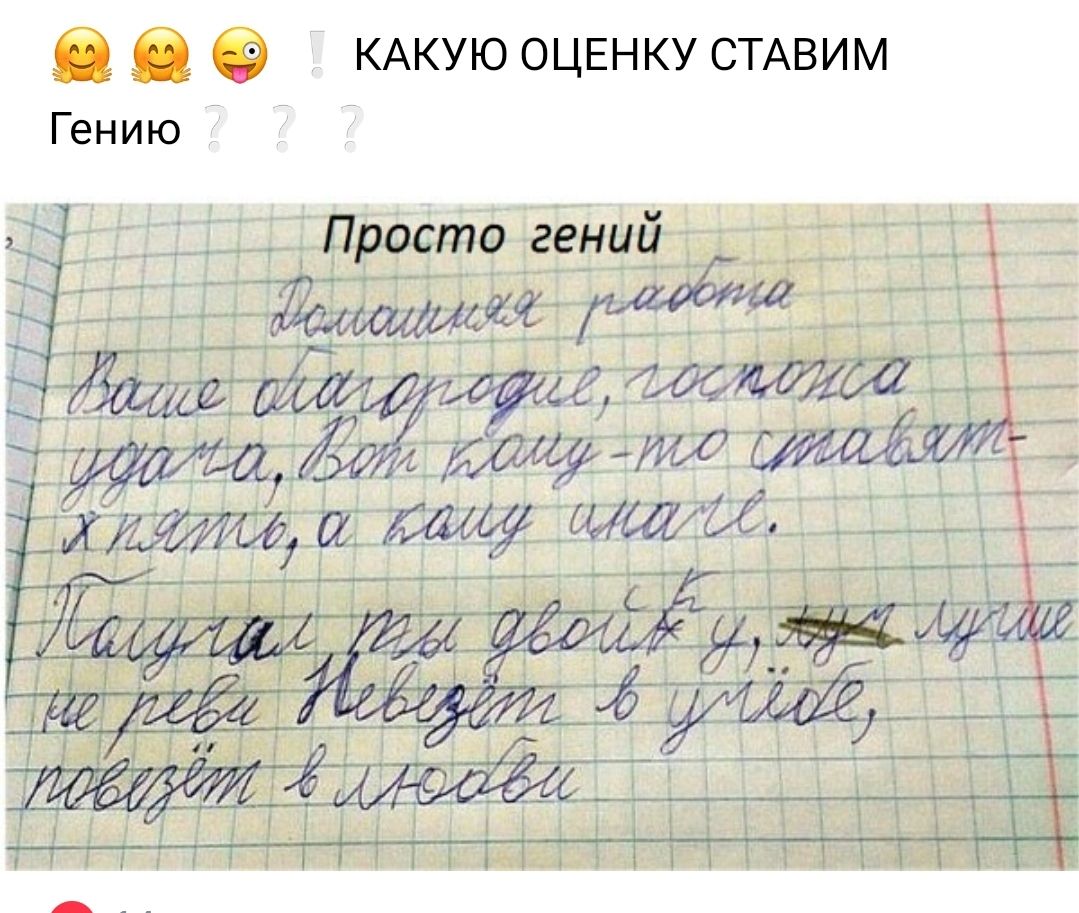 🤗 🤗 😜 ❕ КАКУЮ ОЦЕНКУ СТАВИМ
Гению ❔ ❔ ❔
Просто гений
Домашняя работа
Ваше благородие, госпожа
удача, Вот кому-то ставят-
х пять, а кому иначе.
Получал ты двойку, луч лучше
не реви Невезёт в учёбе,
повезёт в любви